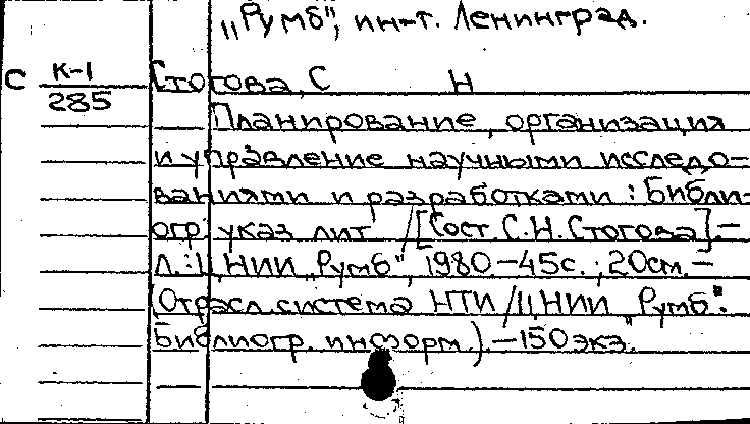 „Румб", ин-т. Ленинград.
С К-1
285
Стогова, С Н
Планирование, организация
и управление научными исследо-
ваниями и разработками : Библи-
огр. указ. лит. /[Сост. С.Н. Стогова].—
Л.: ЦНИИ „Румб", 1980.—45с.; 20см.—
(Отрасл. система НТИ / ЦНИИ „Румб".
Библиогр. информ.).—150 экз.